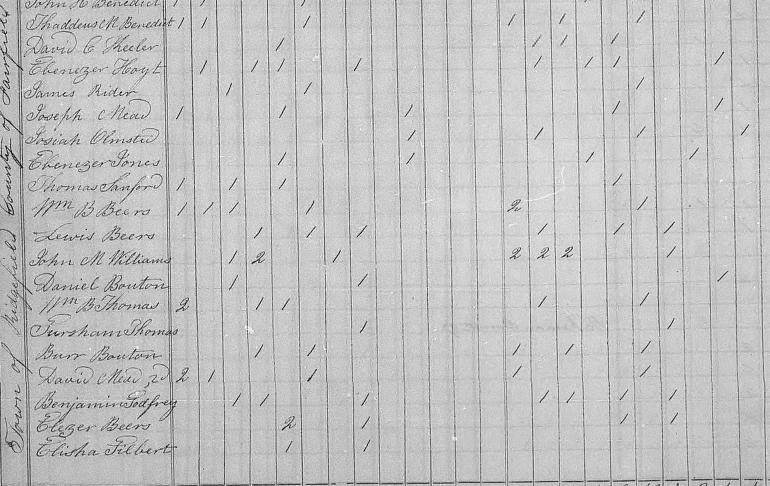 John H Benedict 1 1 1
Thaddeus M Benedict 1 1 1 1 1 1
David C Keeler 1 1 1 1
Ebenezer Hoyt 1 1 1 1 1 1 1 1
James Rider 1 1 1
Joseph Mead 1 1 1 1 1
Josiah Olmsted 1 1 1 1
Ebenezer Jones 1 1 1 1
Thomas Sanford 1 1 1 1
Wm B Beers 1 1 1 1 2 1
Lewis Beers 1 1 1 1 1 1
John M Williams 1 2 1 2 2 2 1
Daniel Bouton 1 1 1
Wm B Thomas 2 1 1 1 1
Thomas 1 1
Burr Bouton 1 1 1 1 1
David Mead 2d 2 1 1 1 1
Benjamin Godfrey 1 1 1 1 1 1 1
Elezer Beers 2 1 1 1
Elisha Filbert 1 1
Town of Ridgefield County of Fairfield